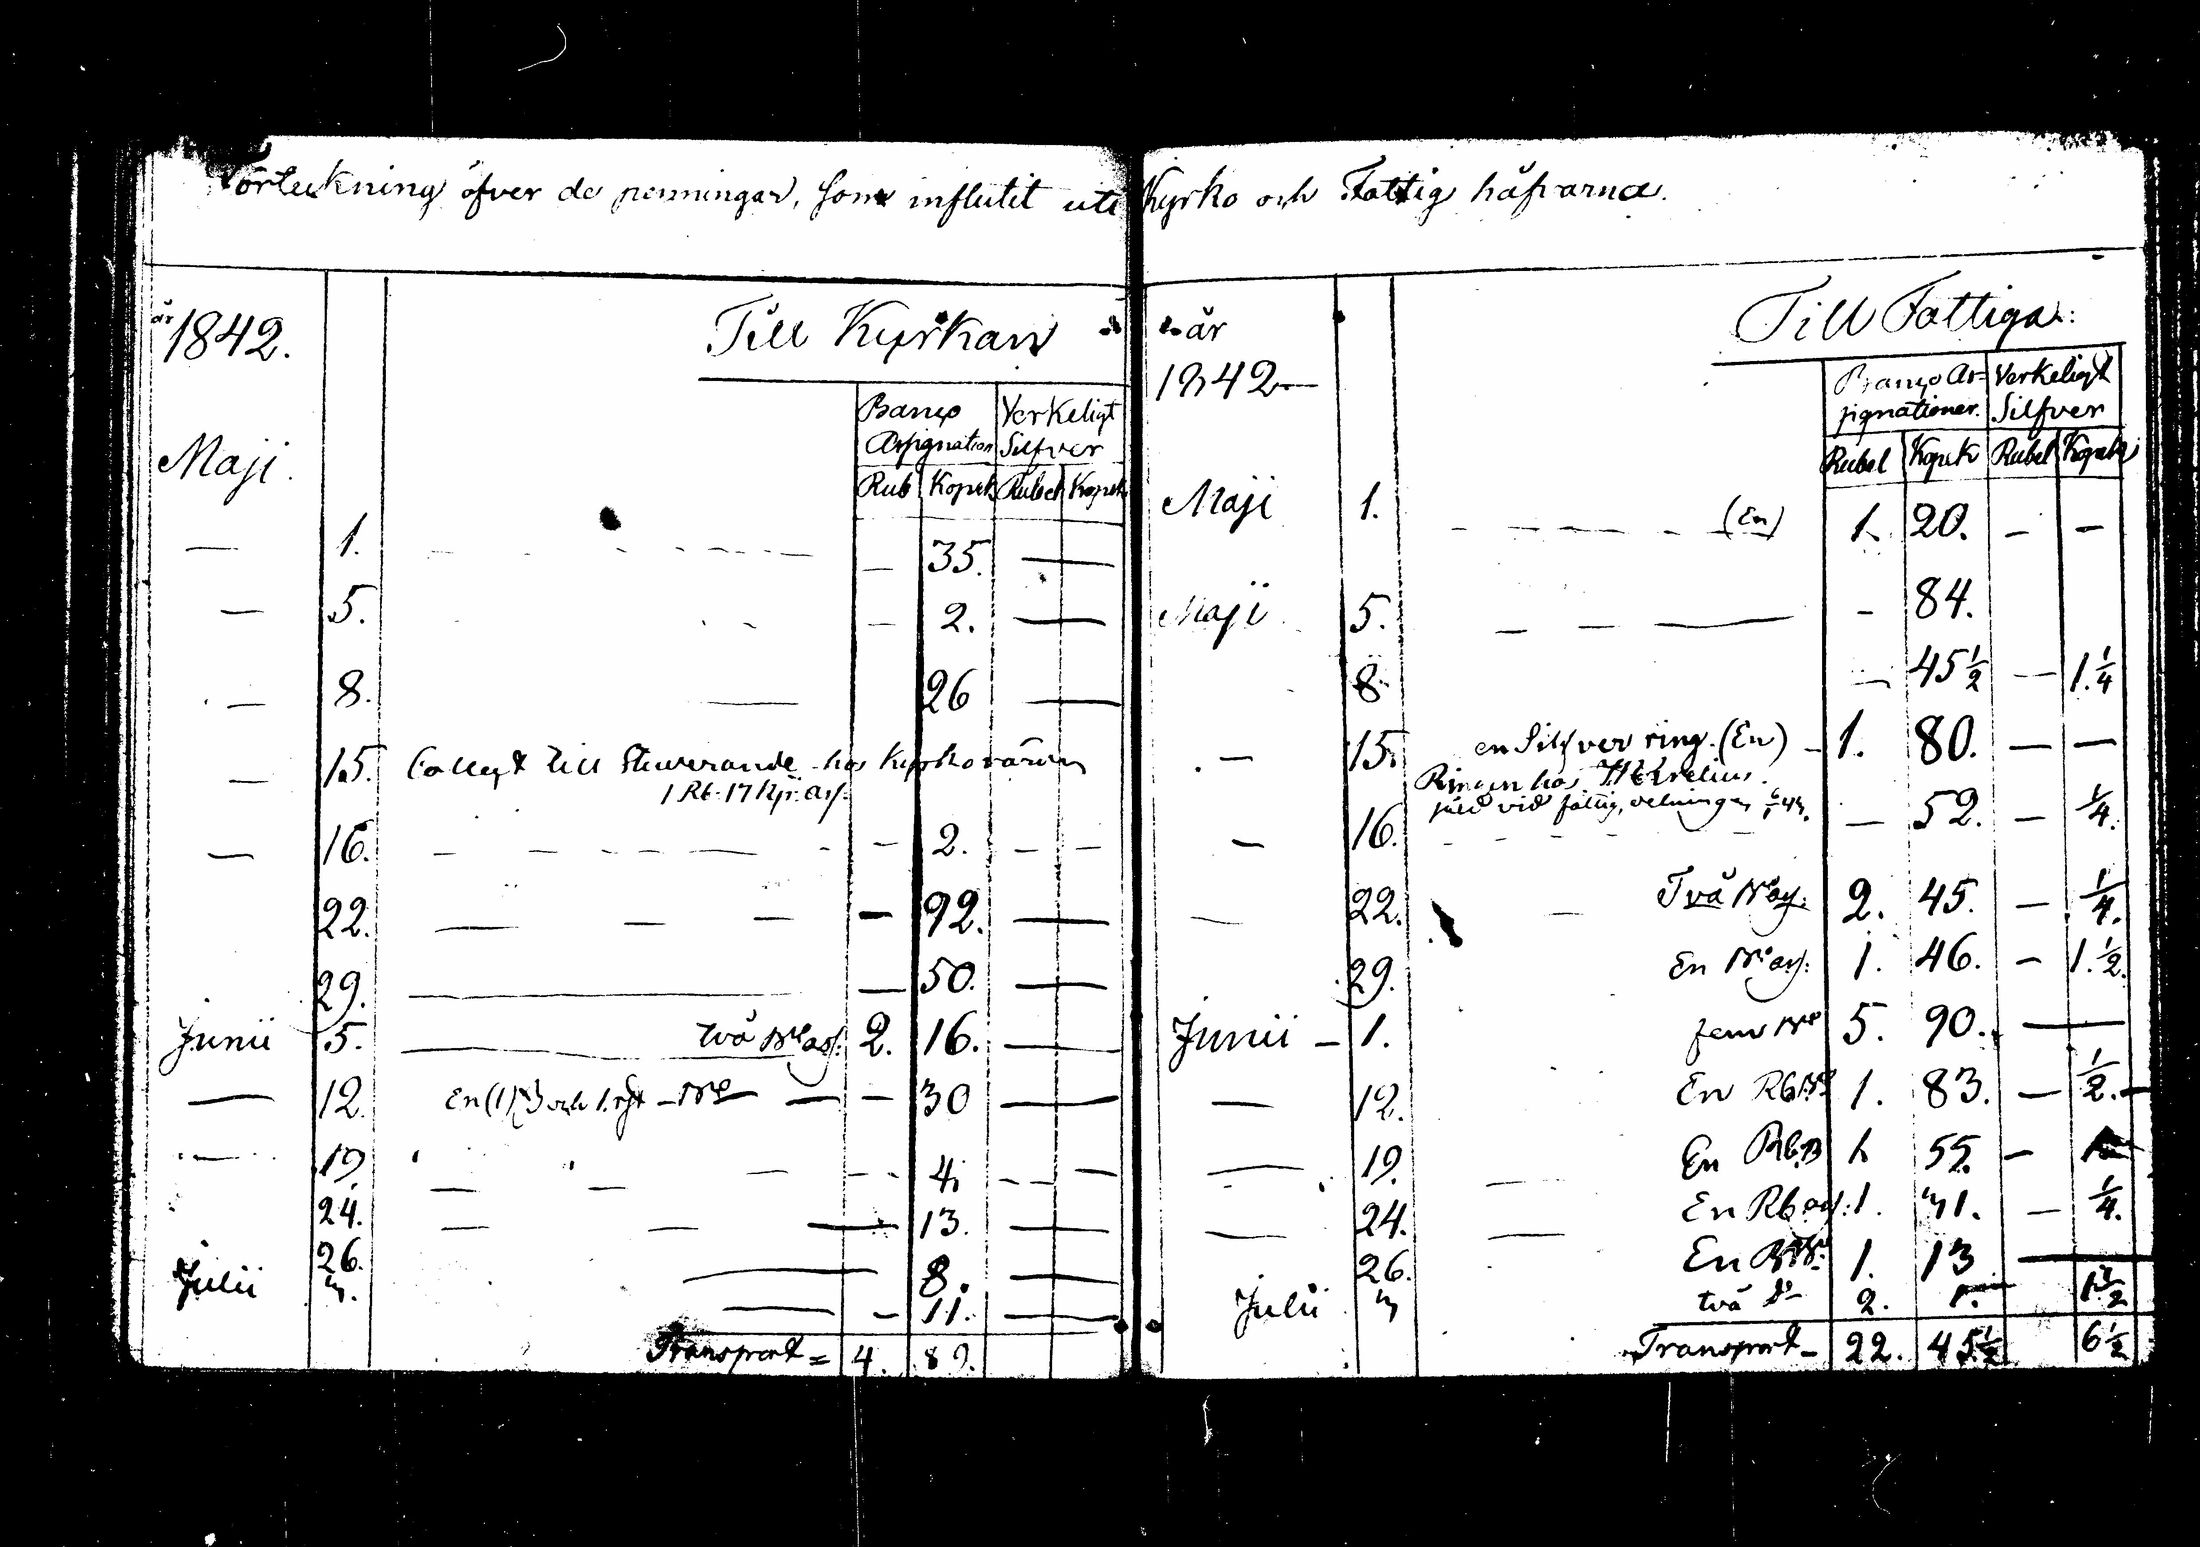 Förteckning öfver de penningar, som influtit uti Kyrko och Fattig håfvarna.
år
1842.
Till Kyrkan
Banco Assignation
Verkeligt Silfver
Rub Kopek Rubel Kopek
Maji.
— 1. — 35. —
— 5. — 2. —
— 8. — 26 —
— 15. Collegt till Studerande hos Kyrkovärden
1 Rb. 17 kp. ass.
— 16. — 2. — —
22. — 92. —
29. — 50. —
Junii 5. två ass. 2. 16. —
— 12. En (1) och 1. — 30 —
— 19. — 4. —
24. — 13. —
26. — 8. —
Julii 3. — 11. —
Transport = 4. 89.
år
1842 —
Till Fattiga:
Banco Assignationer.
Verkeligt Silfver
Rubel Kopek Rubel Kopek
Maji 1. (En) 1. 20. — —
Maji 5. — 84.
8. — 45 1/2 — 1. 1/4
— 15. en Silfver ring. (En) — 1. 80. — —
Ringen hos
såld vid fattig delningen
— 16. — 52. — 1/4.
— 22. — Två 2. 45. — 1/4.
29. En 1. 46. — 1. 1/2.
Junii — 1. fem 5. 90. —
— 12. En Rb 1. 83. — 1/2. —
— 19. En Rb. 1. 55. —
— 24. — En Rb ass. 1. 31. — 1/4.
26. En 1. 13 —
Julii 3 två do 2. 1. —
Transport — 22. 45 1/2 6 1/2